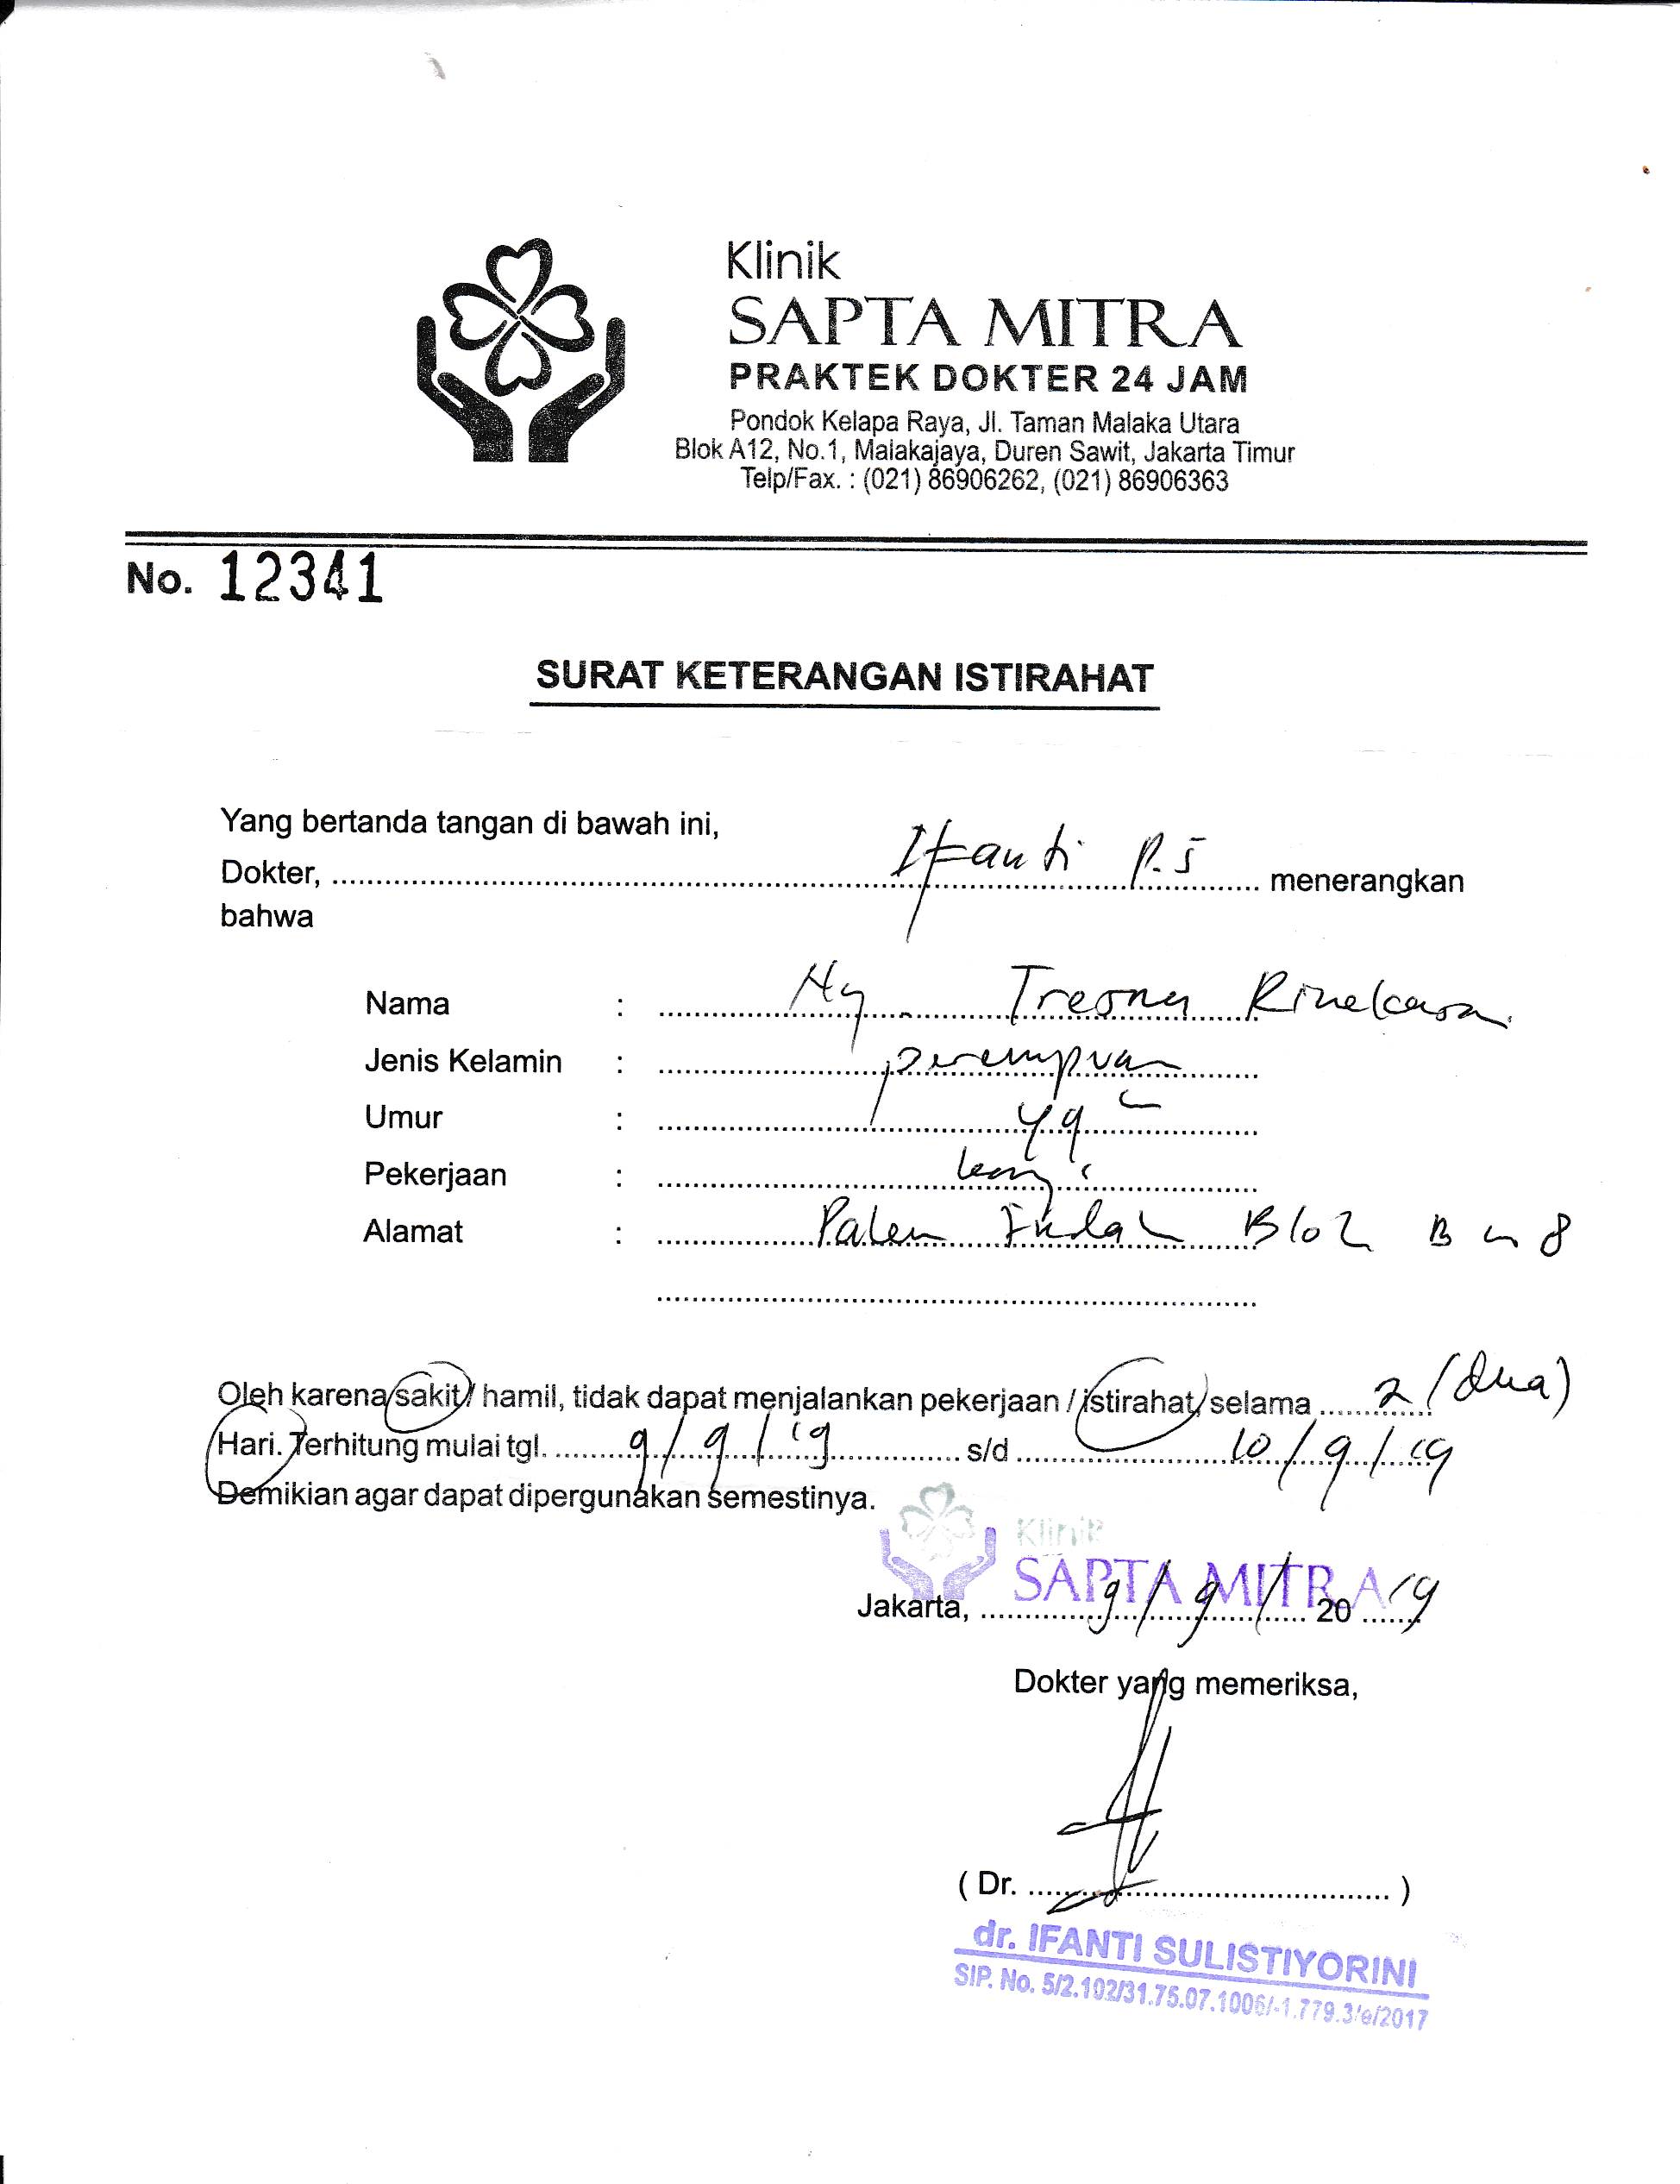 Klinik
SAPTA MITRA
PRAKTEK DOKTER 24 JAM
Pondok Kelapa Raya, Jl. Taman Malaka Utara
Blok A12, No.1, Malakajaya, Duren Sawit, Jakarta Timur
Telp/Fax. : (021) 86906262, (021) 86906363
No. 12341
SURAT KETERANGAN ISTIRAHAT
Yang bertanda tangan di bawah ini,
Dokter, Ifanti menerangkan
bahwa
Nama : Ny Tresna
Jenis Kelamin : perempuan
Umur : 49
Pekerjaan :
Alamat : Palem Indah Blok B 8
Oleh karena sakit / hamil, tidak dapat menjalankan pekerjaan / istirahat, selama 2 (dua)
Hari. Terhitung mulai tgl. 9/9/19 s/d 10/9/19
Demikian agar dapat dipergunakan semestinya.
Klinik
SAPTA MITRA
Jakarta, 9/9/ 2019
Dokter yang memeriksa,
( Dr. )
dr. IFANTI SULISTIYORINI
SIP. No. 5/2.102/31.75.07.1006/-1.779.3/e/2017